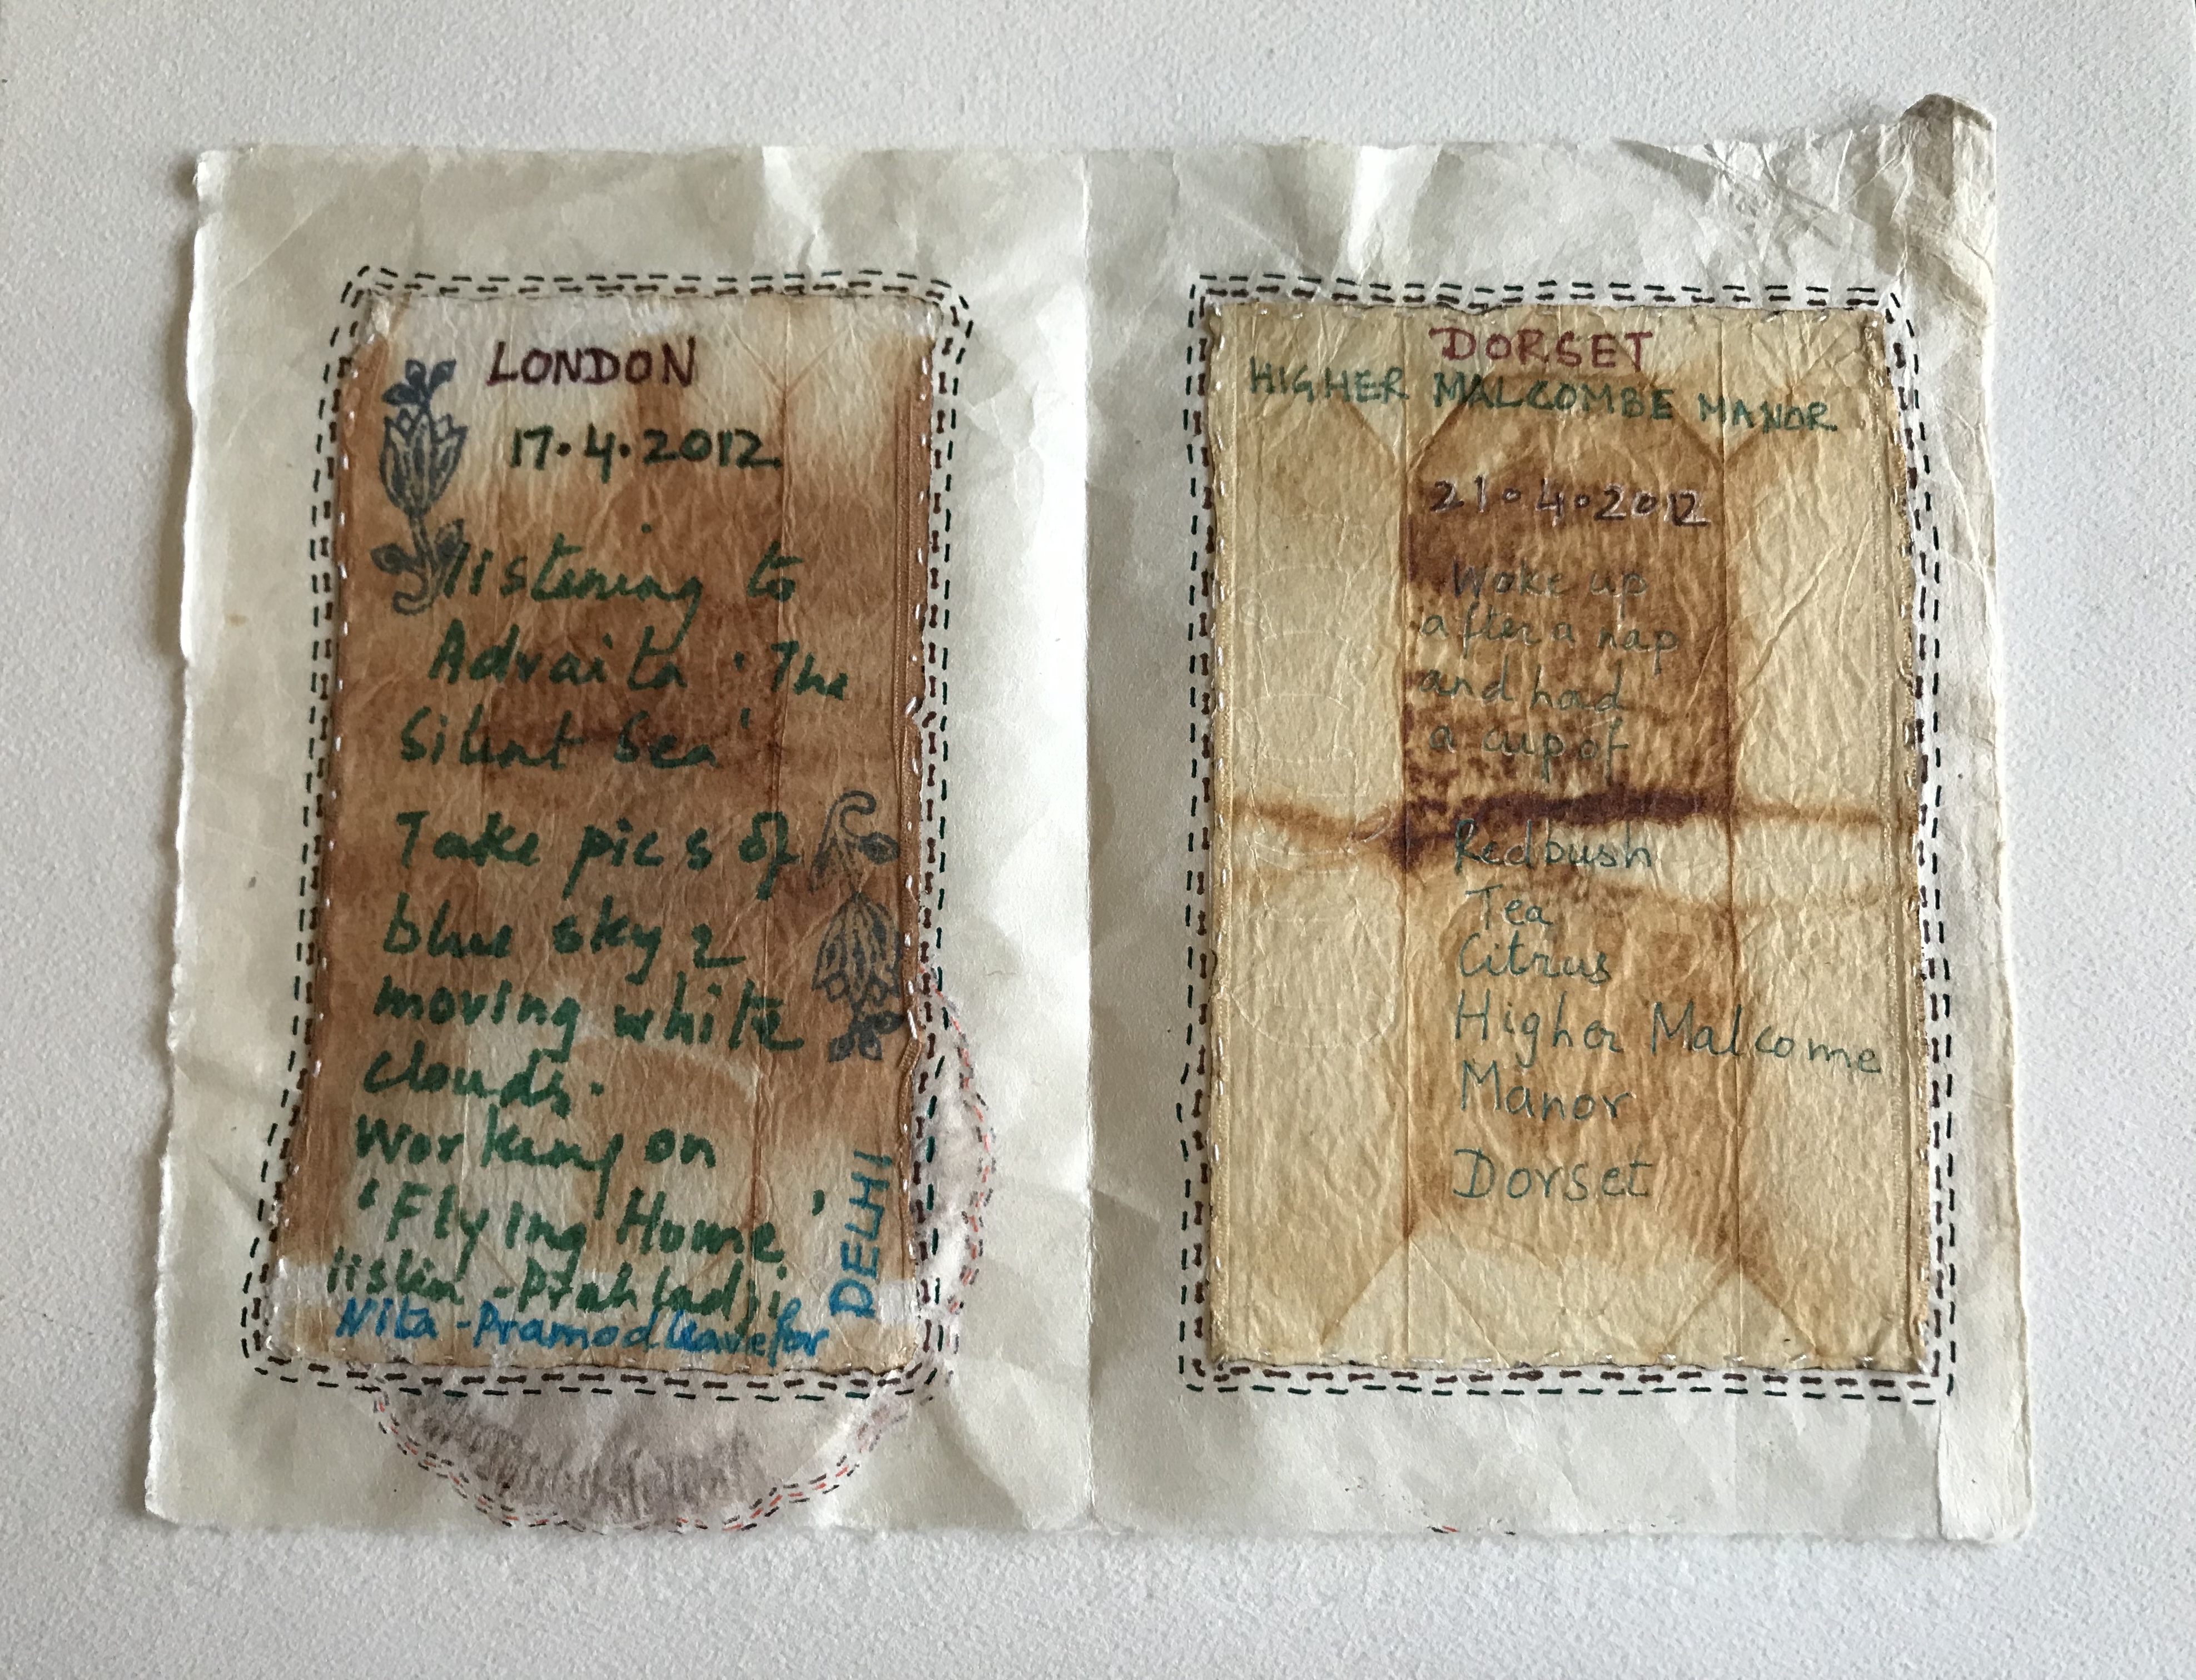 LONDON
17.4.2012
listening to
Advaita 'The
Silent Sea'
Take pics of
blue sky 2
moving white
clouds.
Working on
'Flying Home'
listen - Prahladji
Nita - Pramod leave for
DELHI
DORSET
HIGHER MALCOMBE MANOR
21.4.2012
Woke up
after a nap
and had
a cup of
Redbush
Tea
Citrus
Higher Malcome
Manor
Dorset